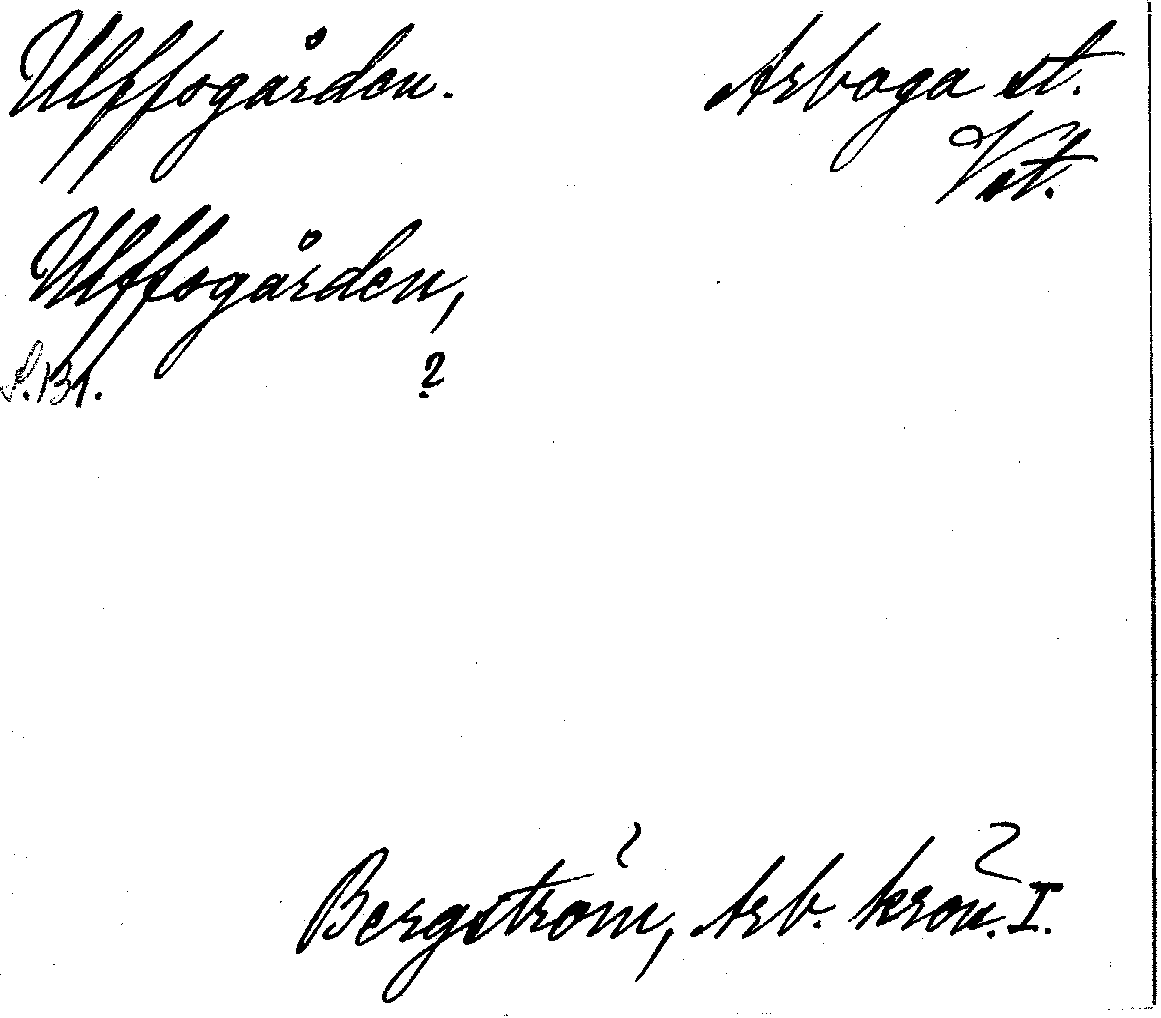 Ulffsgården. Arboga st.
Vst.
Ulffsgården,
S. 131. ?
Bergström, Arb. krön. I.